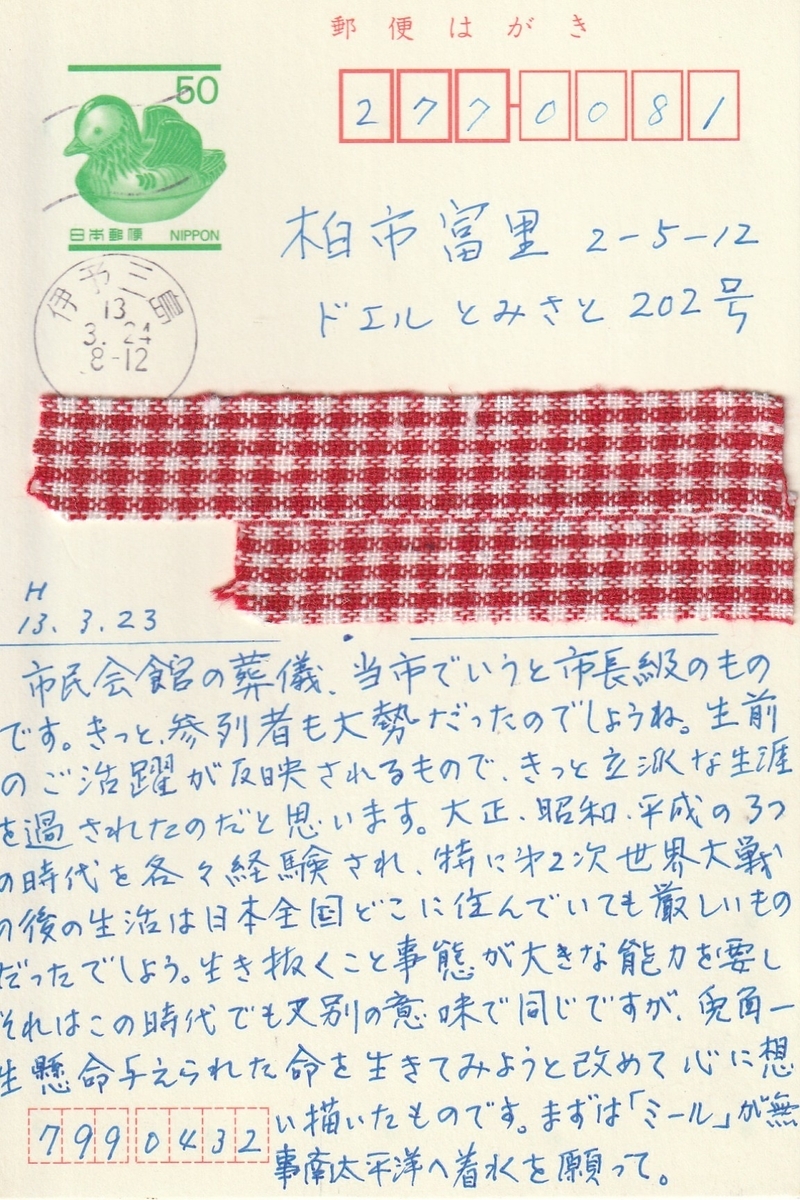 郵便はがき
50
日本郵便 NIPPON
277-0081
柏市富里 2-5-12
ドエルとみさと 202号
伊予三島
13
3.24
8-12
H
13.3.23
市民会館の葬儀、当市でいうと市長級のもの
です。きっと、参列者も大勢だったのでしょうね。生前
のご活躍が反映されるもので、きっと立派な生涯
を過されたのだと思います。大正、昭和、平成の3つ
の時代を各々経験され、特に第2次世界大戦
の後の生活は日本全国どこに住んでいても厳しいもの
だったでしょう。生き抜くこと事態が大きな能力を要し
それはこの時代でも又別の意味で同じですが、兎角一
生懸命与えられた命を生きてみようと改めて心に想
い描いたものです。まずは「ミール」が無
事南太平洋へ着水を願って。
7990432